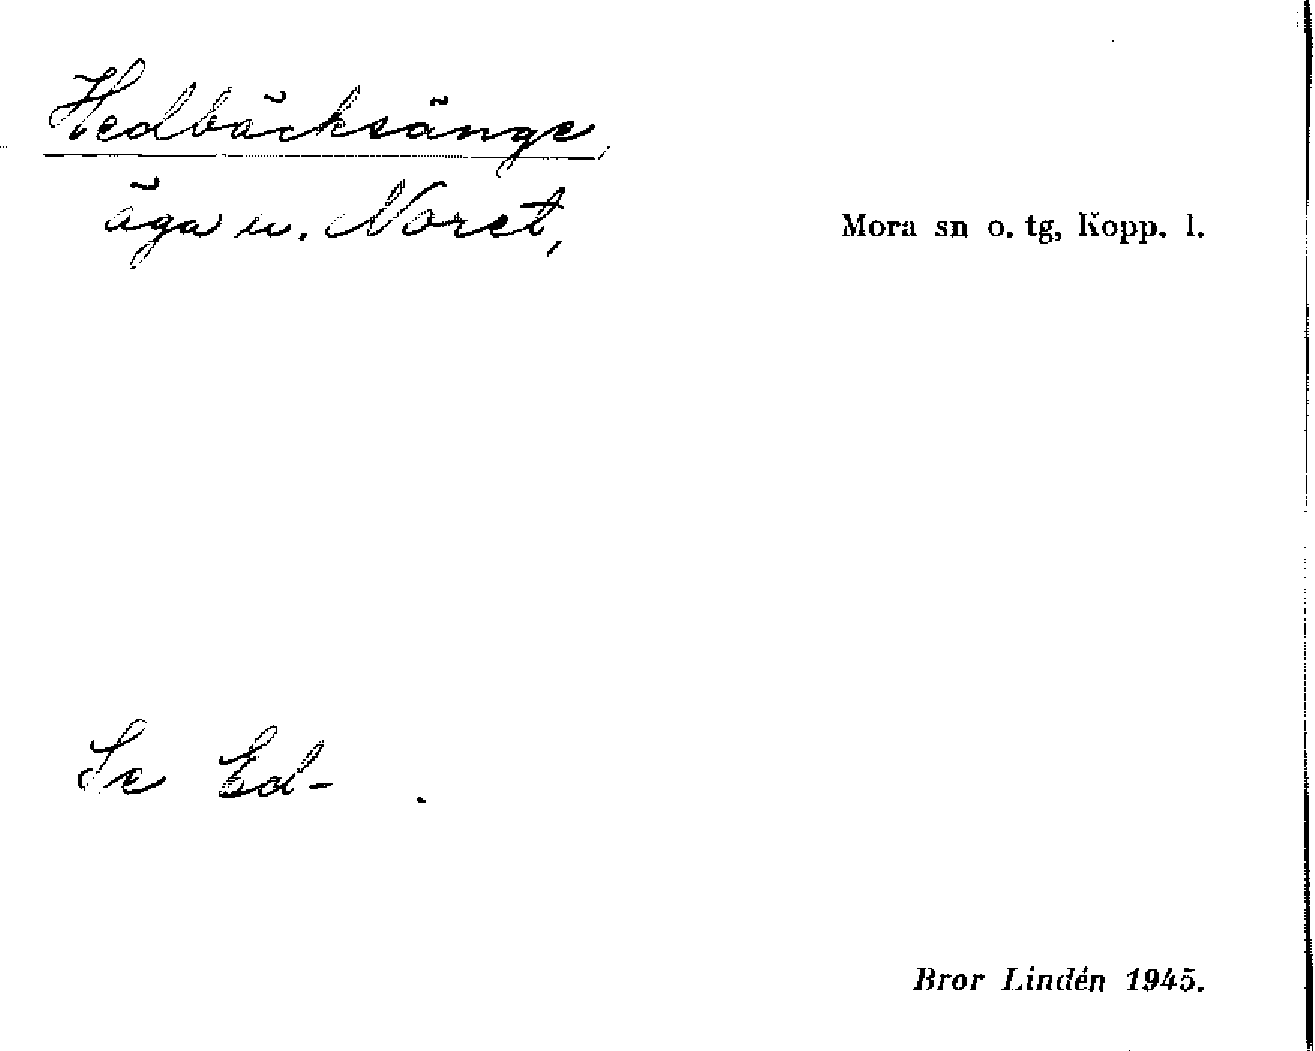 Hedbäcksänge,
äga u. Noret,
Mora sn o. tg, Kopp. l.
Se Ed-
Bror Lindén 1945.